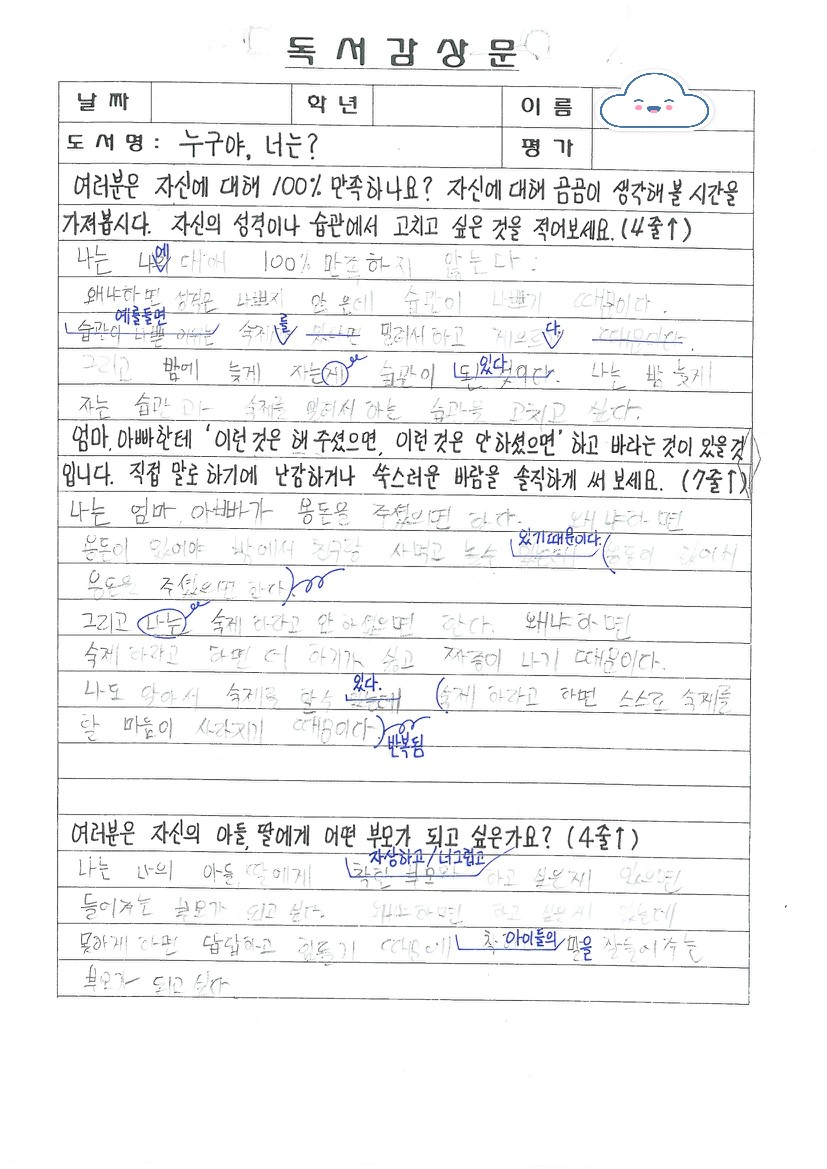 독서감상문
날짜 학년 이름
도서명: 누구야, 너는? 평가
여러분은 자신에 대해 100% 만족하나요? 자신에 대해 곰곰이 생각해 볼 시간을
가져봅시다. 자신의 성격이나 습관에서 고치고 싶은 것을 적어보세요. (4줄↑)
에
나는 대해 100% 만족하지 않는다.
왜냐하면 성격은 나쁘지 않은데 습관이 나쁘기 때문이다.
예를들면
습관이 나쁜 숙제를 밀려서 하고 다. 때문이다.
있다
그리고 밤에 늦게 자는게 습관이 나는 밤 늦게
자는 습관과 숙제를 밀려서 하는 습관을 고치고 싶다.
엄마, 아빠한테 '이런 것은 해 주셨으면, 이런 것은 안 하셨으면' 하고 바라는 것이 있을 것
입니다. 직접 말로 하기에 난감하거나 쑥스러운 바람을 솔직하게 써 보세요. (7줄↑)
나는 엄마, 아빠가 용돈을 주셨으면 한다. 왜냐하면
있기때문이다.
용돈이 있어야 밖에서 친구랑 사먹고 놀수
용돈을 주셨으면 한다
그리고 나는 숙제 하라고 안 하셨으면 한다. 왜냐하면
숙제 하라고 하면 더 하기가 싫고 짜증이 나기 때문이다.
있다.
나도 알아서 숙제를 할수 있는데 숙제 하라고 하면 스스로 숙제를
할 마음이 사라지기 때문이다
반복됨
여러분은 자신의 아들, 딸에게 어떤 부모가 되고 싶은가요? (4줄↑)
자상하고/너그럽고
나는 나의 아들, 딸에게 착한 하고 싶은게 있으면
들어주는 부모가 되고 싶다. 왜냐하면 하고 싶은게 있는데
못하게 하면 답답하고 힘들기 때문에 아이들의 말을 잘 들어주는
부모가 되고 싶다